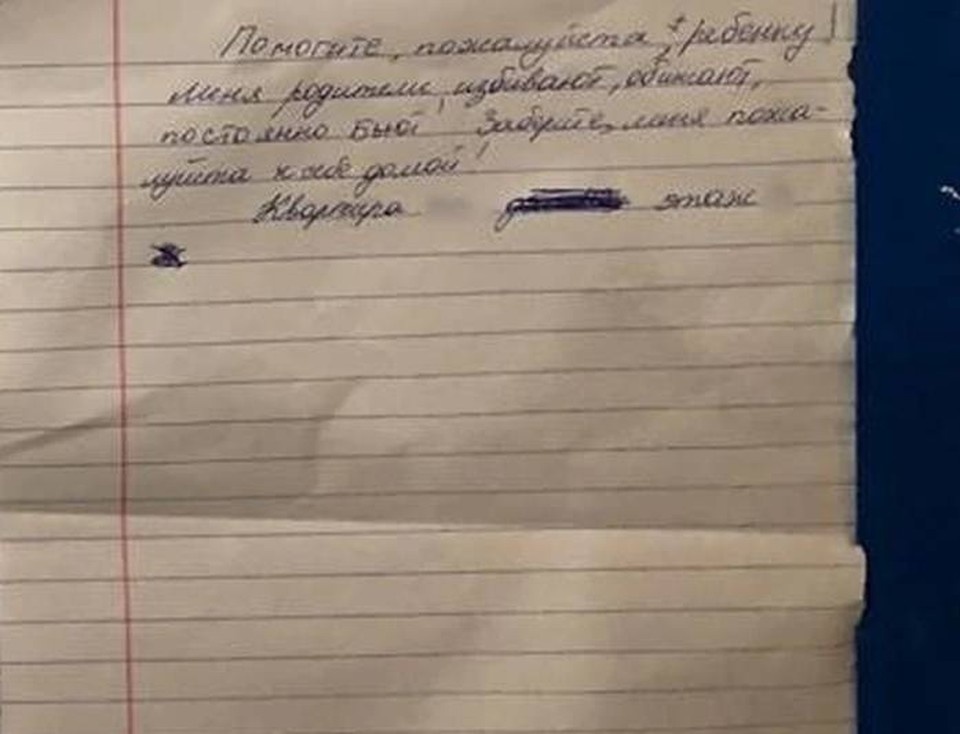 Помогите, пожалуйста, ребенку!
меня родители избивают, обижают,
постоянно бьют! Заберите, меня пожа-
луйста к себе домой!
Квартира этаж